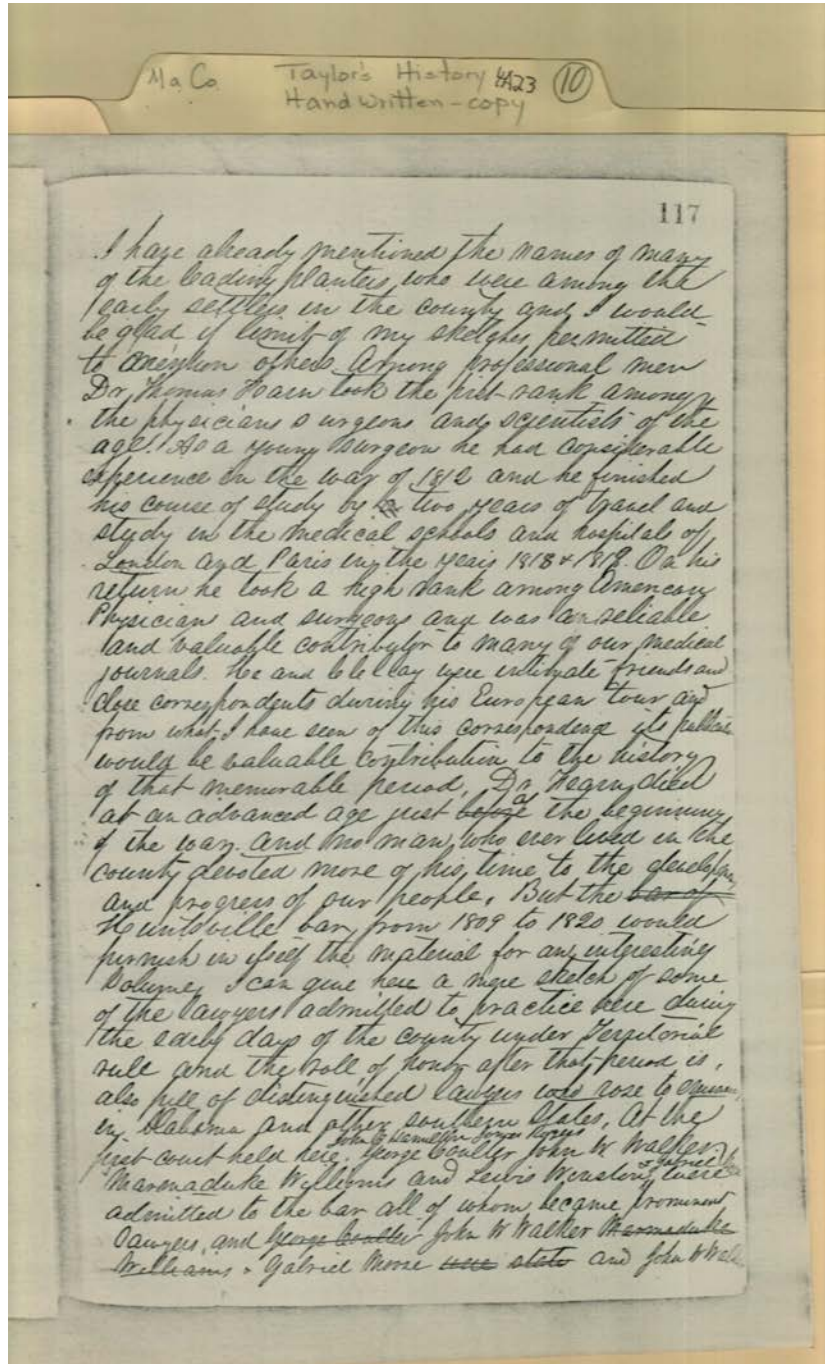 Ma. Co. Taylor's History 4A23 10
Hand written - copy
117
I have already mentioned the names of many
of the leading planters, who were among the
early settlers in the county and I would
be glad if limit of my sketches permitted
to mention others. Among professional men
Dr Thomas Fearn took the first rank among
the physicians surgeons and scientists of the
age. As a young surgeon he had considerable
experience in the war of 1812 and he finished
his course of study by a two years of travel and
study in the medical schools and hospitals of
London and Paris in the years 1818 & 1819. On his
return he took a high rank among American
Physician and surgeons and was an reliable
and valuable contributor to many of our medical
journals. He and Clay were intimate friends and
close correspondents during his European tour and
from what I have seen of this correspondence its
would be valuable contribution to the history
of that memorable period, Dr. Fearn died
at an advanced age just before at the beginning
of the war. and no man, who ever lived in the
county devoted more of his time to the
and progress of our people. But the bar of
Huntsville bar, from 1809 to 1820 would
furnish in itself the material for an interesting
Volume, I can give here a mere sketch of some
of the lawyers admitted to practice here during
the early days of the county under Territorial
rule and the roll of honor after that period is,
also full of distinguished lawyers who rose to
in Alabama and other southern States, At the
first court held here, George Coulter John W Walker,
Marmaduke Williams and Lewis Winston, & Gabriel were
admitted to the bar all of whom became prominent
lawyers, and George Coulter John W Walker Marmaduke
Williams & Gabriel Moore were state and John W